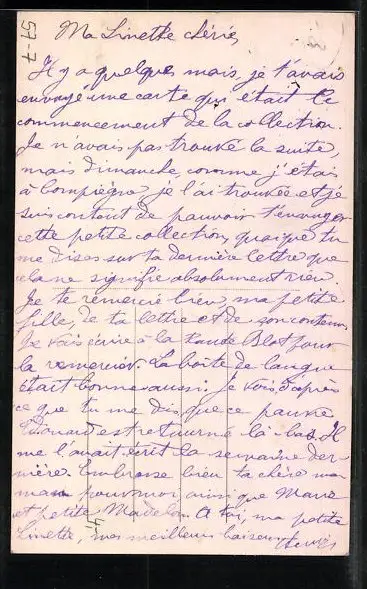 57-7
Ma Linette chérie,
Il y a quelques mois, je t'avais
envoyé une carte qui était le
commencement de la collection.
Je n'avais pas trouvé la suite,
mais dimanche, comme j'étais
à Compiègne je l'ai trouvée et je
suis content de pouvoir t'envoyer
cette petite collection, quoique tu
me dises sur ta dernière lettre que
cela ne signifie absolument rien.
Je te remercie bien, ma petite
fille, de ta lettre et de son contenu.
Je vais écrire à la Blot pour
la remercier. La boîte de langue
était bonne aussi. Je vois, d'après
ce que tu me dis, que ce pauvre
Edouard est retourné là-bas. Il
me l'avait écrit la semaine der-
nière. Embrasse bien ta chère ma-
man pour moi ainsi que Mané
et petite Madelon. A toi, ma petite
Linette, mes meilleurs baisers.